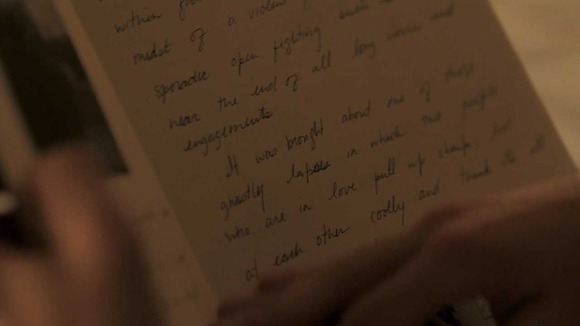 within
midst of a violent
sporadic open fighting
near the end of all long wars and
engagements
It was brought about one of those
ghostly lapses in which two people
who are in love pull up sharp,
at each other coolly and think it's all